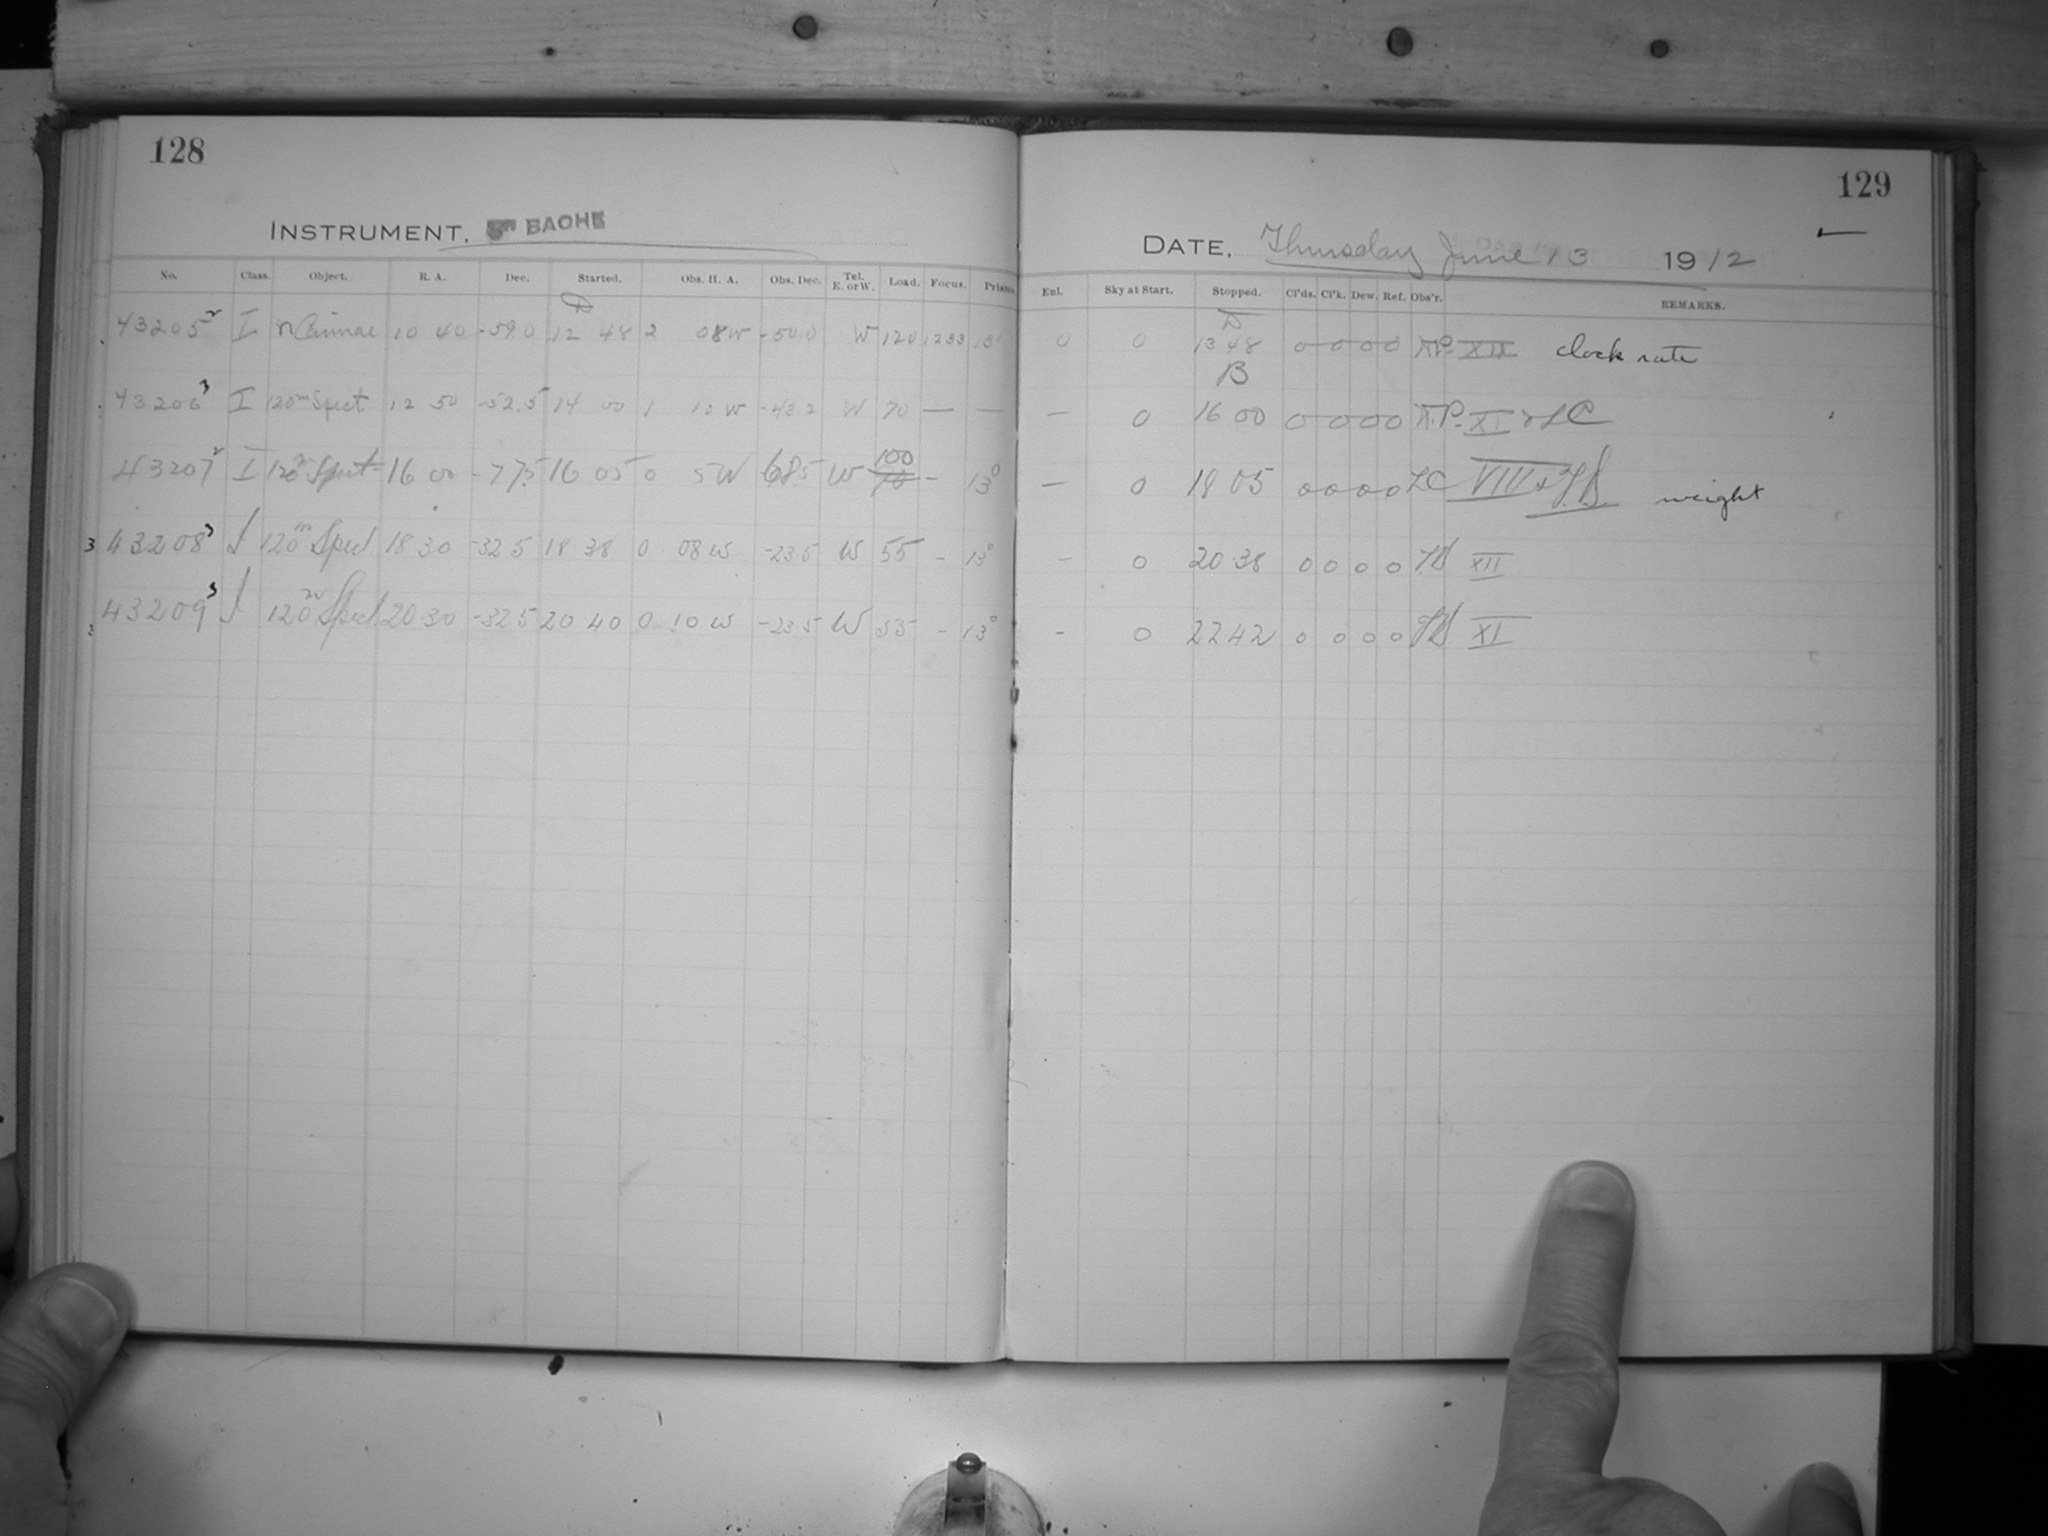 128
INSTRUMENT, 8in BACHE
No. Class. Object. R. A. Dec. Started. Obs. H. A. Obs. Dec. Tel. E. or W. Load. Focus. Prism
D
43205 2 I η Carinae 10 40 -59.0 12 48 2 08 W -50.0 W 120 1233 13°
43206 3 I 120m Spect 12 50 -52.5 14 00 1 10 W -43.2 W 70 — —
43207 2 I 120m Spect 16 00 -77.5 16 05 0 5 W 68.5 W 100 70 - 13°
3 43208 3 I 120m Spect 18 30 -32 5 18 38 0 08 W -23 5 W 55 - 13°
3 43209 3 I 120m Spect 20 30 -32 5 20 40 0 10 W -23 5 W 55 - 13°
129
DATE, Thursday June 13 1912
Enl. Sky at Start. Stopped. Cl'ds. Cl'k. Dew. Ref. Obs'r. REMARKS.
D
0 0 13 48 0 0 0 0 XII clock rate
B
— 0 16 00 0 0 0 0 XI & LC
— 0 18 05 0 0 0 0 LC VIII weight
— 0 20 38 0 0 0 0 XII
- 0 22 42 0 0 0 0 XI